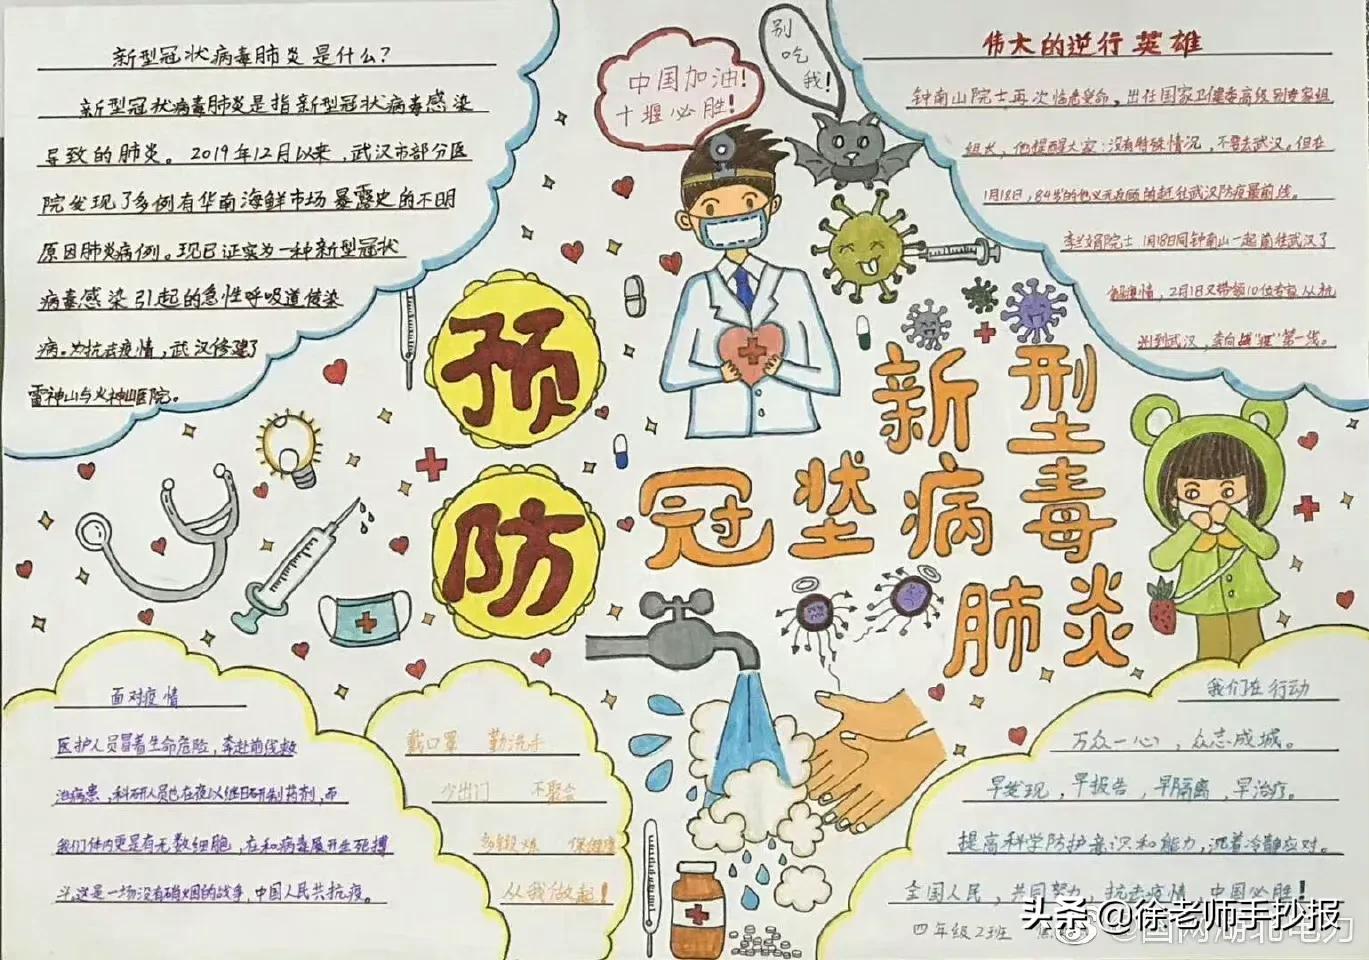 新型冠状病毒肺炎是什么?
新型冠状病毒肺炎是指新型冠状病毒感染
导致的肺炎。2019年12月以来,武汉市部分医
院发现了多例有华南海鲜市场暴露史的不明
原因肺炎病例。现已证实为一种新型冠状
病毒感染引起的急性呼吸道传染
病。为抗击疫情,武汉修建了
雷神山与火神山医院。
中国加油!
十堰必胜!
别
吃
我!
伟大的逆行英雄
钟南山院士再次临危受命,出任国家卫健委高级别专家组
组长,他提醒大家:没有特殊情况,不要去武汉。但在
1月18日,84岁的他义无反顾的赶往武汉防疫最前线。
李兰娟院士1月18日同钟南山一起前往武汉了
解疫情,2月1日又带领10位专家从杭
州到武汉,奔向战"疫"第一线。
预
防
新型
冠状病毒
肺炎
面对疫情
医护人员冒着生命危险,奔赴前线救
治病患,科研人员也在夜以继日研制药剂,而
我们体内更是有无数细胞,在和病毒展开生死搏
斗。这是一场没有硝烟的战争,中国人民共抗疫。
戴口罩 勤洗手
少出门 不聚会
多锻炼 保健康
从我做起!
我们在行动
万众一心,众志成城。
早发现,早报告,早隔离,早治疗。
提高科学防护意识和能力,沉着冷静应对。
全国人民,共同努力,抗击疫情,中国必胜!
四年级2班
头条@徐老师手抄报
@国网湖北电力